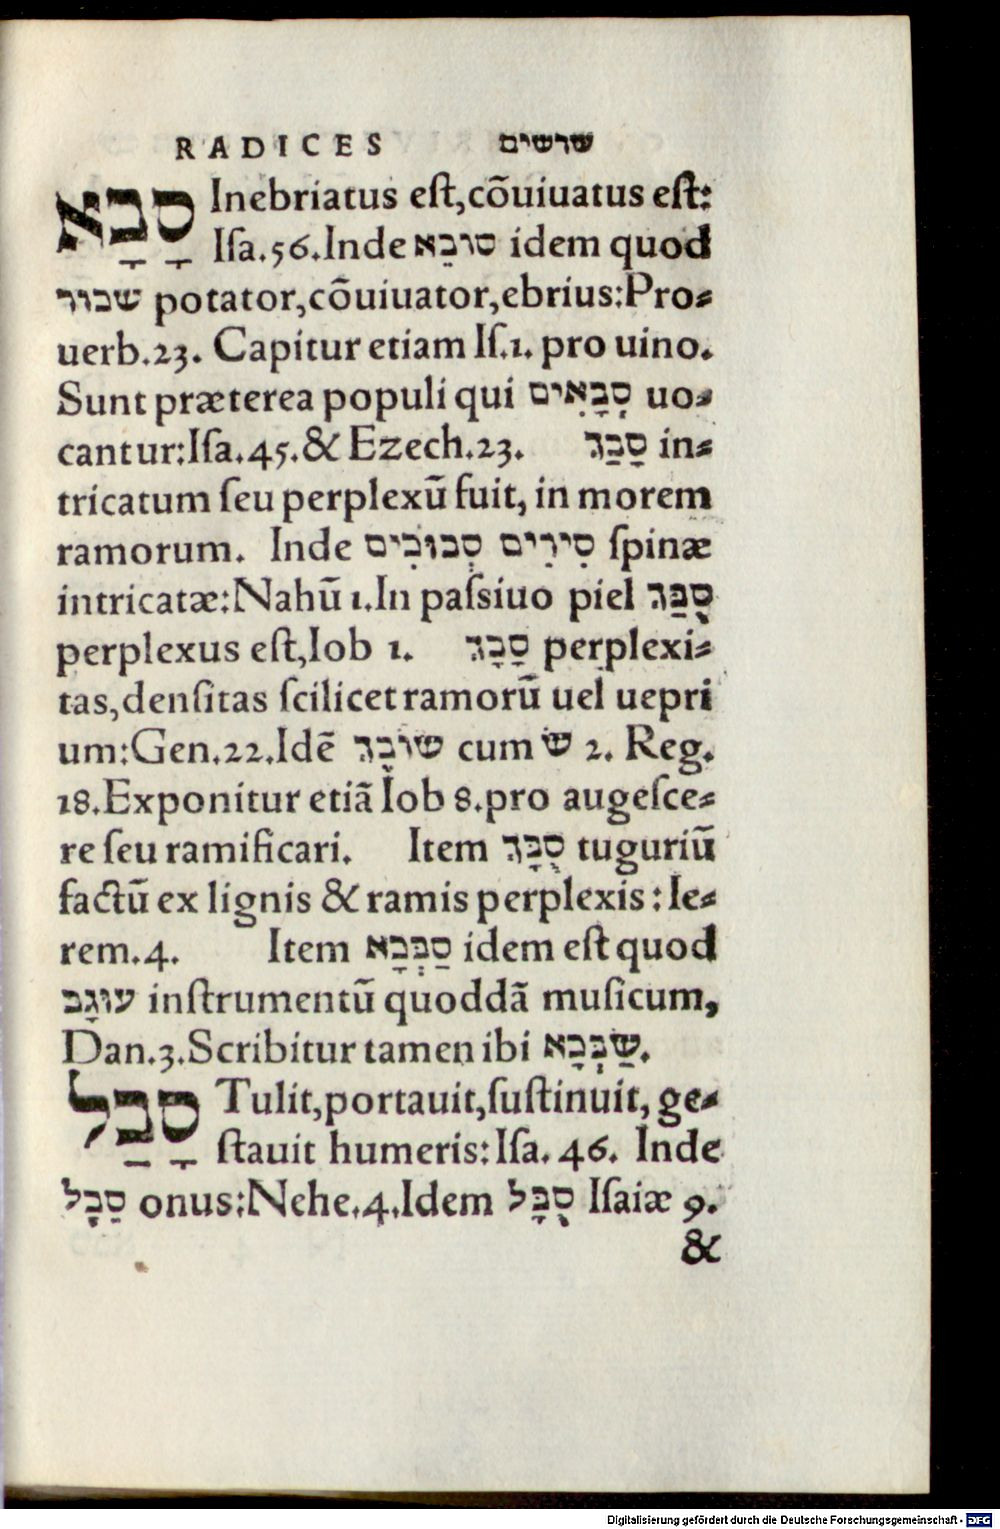 RADICES שרשים
סָבָא Inebriatus eſt,cõuiuatus eſt:
Iſa.56.Inde סובֵא idem quod
שבור potator,cõuiuator,ebrius:Pro⸗
uerb.23. Capitur etiam Iſ.1. pro uino.
Sunt præterea populi qui סְבָאִים uo⸗
cantur:Iſa.45.& Ezech.23. סָבַךְ in⸗
tricatum ſeu perplexũ fuit, in morem
ramorum. Inde סִירִים סְבוּכִים ſpinæ
intricatæ:Nahũ 1.In paſsiuo piel סֻבַּךְ
perplexus eſt,Iob 1. סְבָךְ perplexi⸗
tas,denſitas ſcilicet ramorũ uel uepri
um:Gen.22.Idẽ שׂובֶךְ cum שׂ 2. Reg.
18.Exponitur etiã Iob 8.pro augeſce⸗
re ſeu ramificari. Item סֻבָּךְ tuguriũ
factũ ex lignis & ramis perplexis: Ie⸗
rem.4. Item סַבְּכָא idem eſt quod
עוּגָב inſtrumentũ quoddã muſicum,
Dan.3.Scribitur tamen ibi שַׂבְּכָא.
סָבַל Tulit,portauit,ſuſtinuit, ge⸗
ſtauit humeris:Iſa. 46. Inde
סַבָּל onus:Nehe.4.Idem סֻבָּל Iſaiæ 9.
&
Digitalisierung gefördert durch die Deutsche Forschungsgemeinschaft - DFG